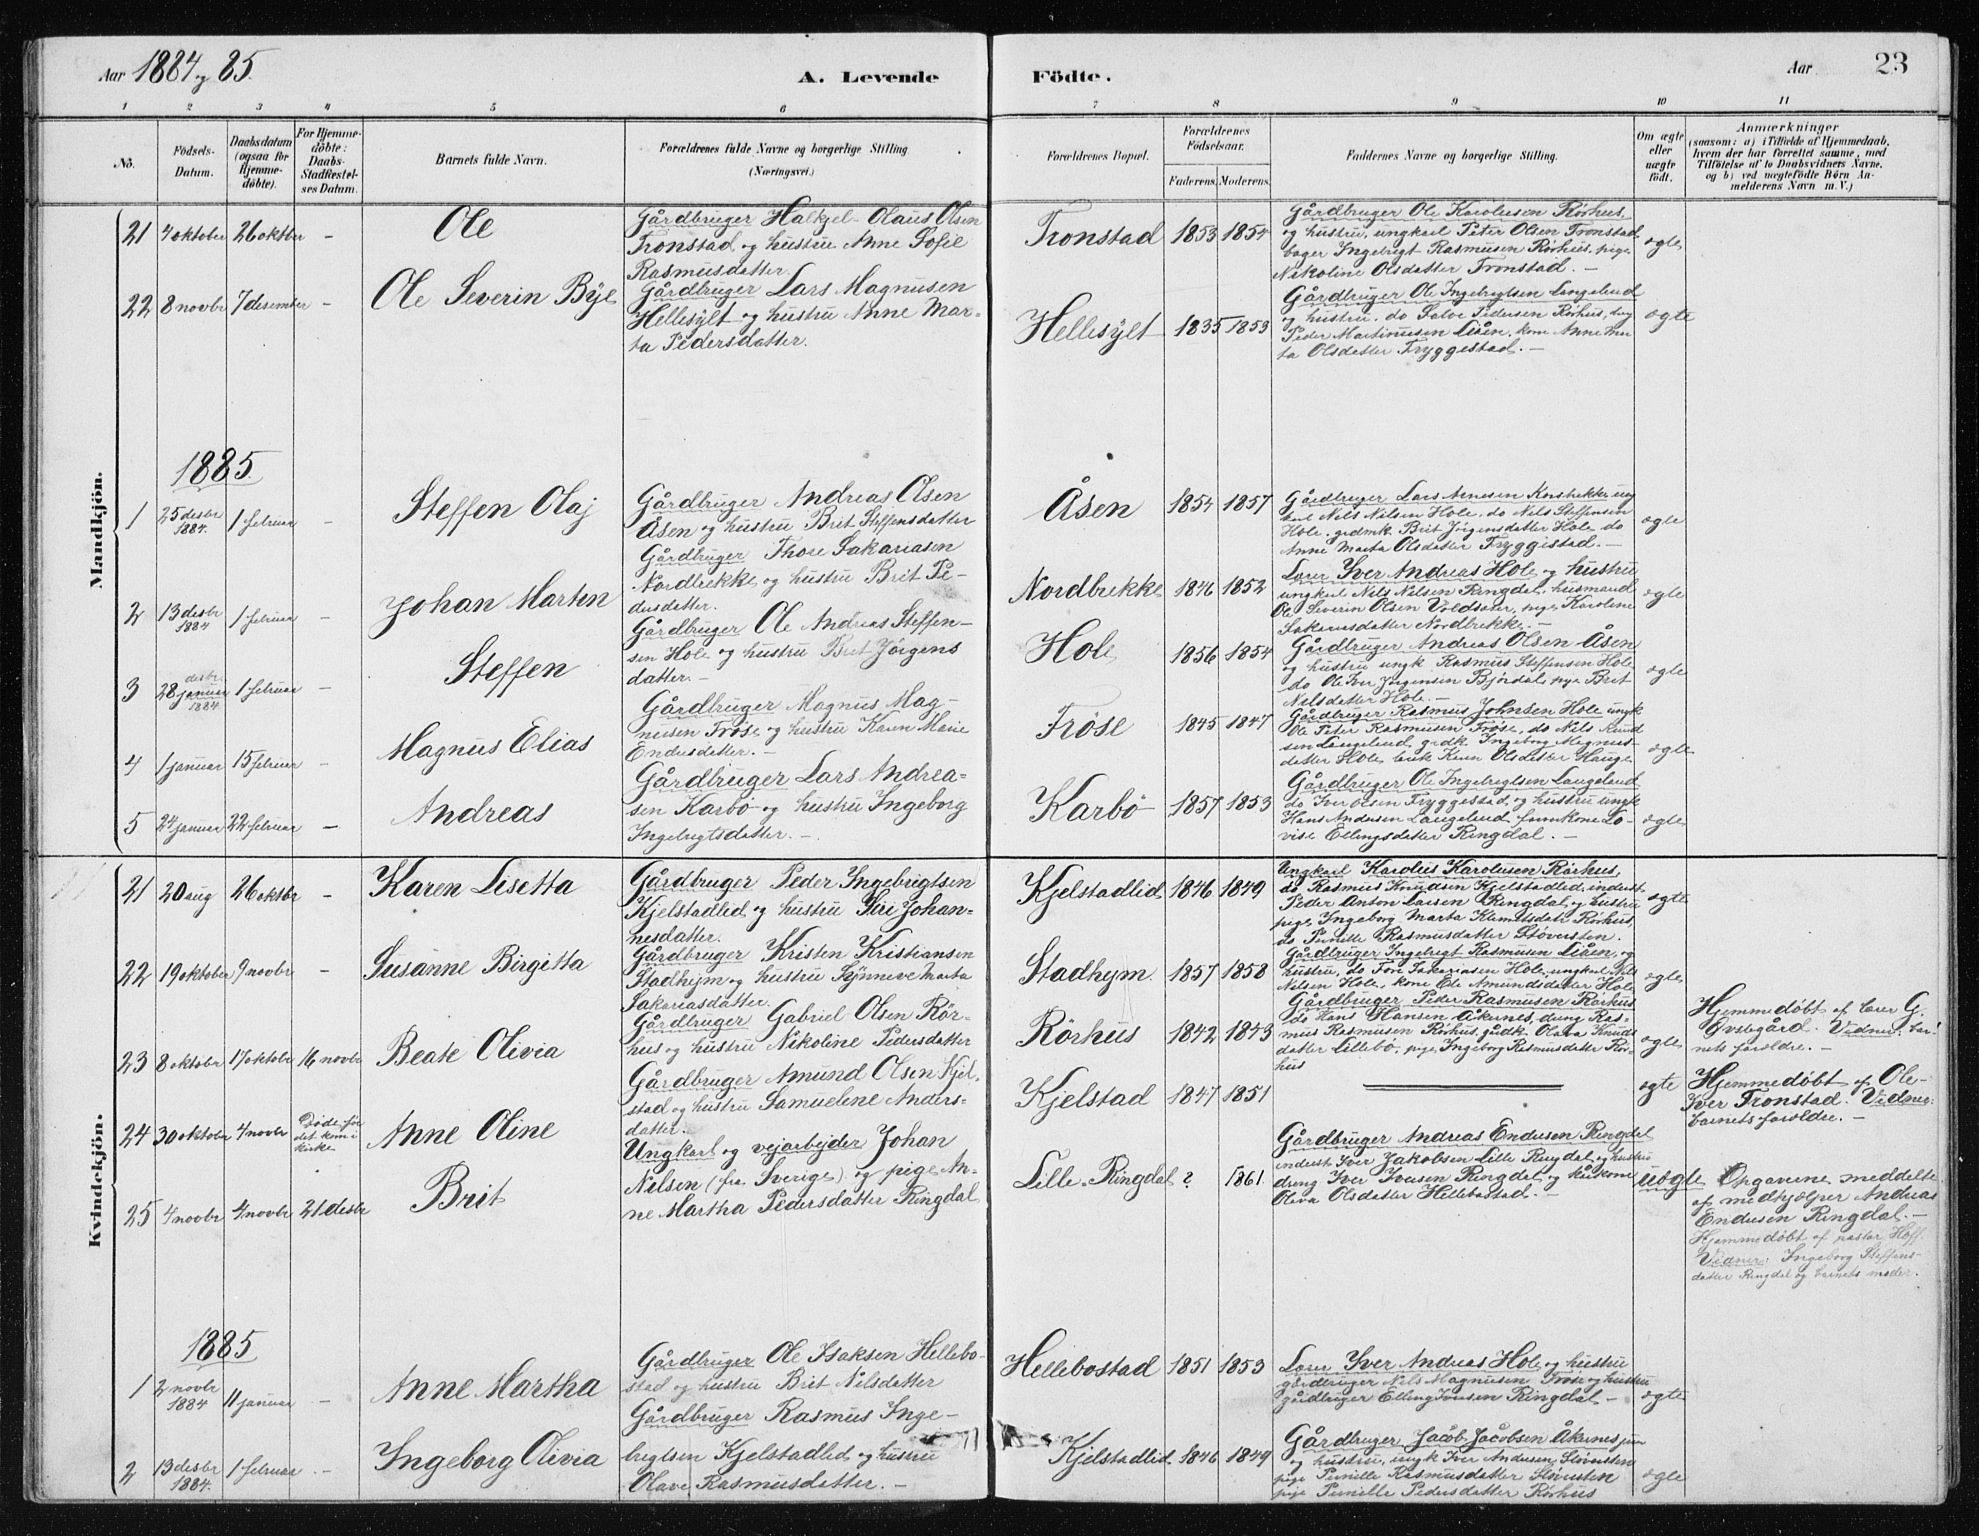 Aar 1884 og 85.
A. Levende Födte.
Aar
23
1 2 3 4 5 6 7 8 9 10 11
No.
Födsels-Datum.
Daabsdatum (ogsaa for Hjemme-döbte).
For Hjemme-döbte: Daabs-Stadfestel-ses Datum.
Barnets fulde Navn.
Forældrenes fulde Navne og borgerlige Stilling (Næringsvei.)
Forældrenes Bopæl.
Forældrenes Födselsaar.
Faderens. Moderens.
Faddernes Navne og borgerlige Stilling.
Om ægte eller uægte födt.
Anmærkninger
(saasom: a) i Tilfælde af Hjemmedaab,
hvem der har forrettet samme, med
Tilföielse af to Daabsvidners Navne,
og b) ved uægtefödte Börn An-
melderens Navn m.V.)
Mandkjön.
21 4 oktober 26 oktbr - Ole
Gårdbruger Halkjel Olaus Olsen
Tronstad og hustru Anne Sofie
Rasmusdatter.
Tronstad 1853 1854
Gårdbruger Ole Karolusen Rörhus,
og hustru, ungkarl Peter Olsen Tronstad
Ingebrigt Rasmusen Rörhus, pige
Nikoline Olsdatter Tronstad. -
ægte
22 8 novbr 7 desember - Ole Severin Byl
Gårdbruger Lars Magnusen
Hellesylt og hustru Anne Mar-
ta Pedersdatter.
Hellesylt 1835 1853
Gårdbruger Ole Ingebrigtsen Langelund
og hustru, do Salve Pedersen Rörhus,
Peder Martinusen Liåen, kone Anne Mar
ta Olsdatter Tryggestad. -
ægte
1885.
1 25 desbr 1884. 1 februar - Steffen Olaj
Gårdbruger Andreas Olsen
Åsen og hustru Brit Steffensdatter
Åsen 1854 1857
Gårdbruger Lars Arnesen
Nils Nilsen Hole, do Nils Steffensen
Hole, grdmk Brit Jörgensdatter Hole do
Anne Marta Olsdatter Tryggestad. -
ægte
2 13 desbr 1884 1 februar - Johan Marten
Gårdbruger Thore Sakariasen
Nordbrekke og hustru Brit Pe-
dersdatter.
Nordbrekke 1846 1852
Lærer Iver Andreas Hole og hustru
ungkarl Nils Nilsen Ringdal, husmand
Ole Severin Olsen Voldsæter, pige Karoline
Sakariasdatter Nordbrekke. -
ægte
3 desbr 28 januar 1884. 1 februar - Steffen
Gårdbruger Ole Andreas Steffen-
sen Hole og hustru Brit Jörgens
datter. -
Hole 1856 1854
Gårdbruger Andreas Olsen Åsen
og hustru ungk Rasmus Steffensen Hole
do Ole Iver Jörgensen Bjørdal, pige Brit
Nilsdatter Hole. -
ægte
4 1 januar 15 februar - Magnus Elias
Gårdbruger Magnus Mag-
nusen Fröse og hustru Karen Marie
Endresdatter. -
Fröse 1845 1847
Gårdbruger Rasmus Johnsen Hole ungk
Ole Peter Rasmusen Fröse, do Nils Knud
sen Langelund, grdk Ingeborg Magnus-
datter Hole, Olsdatter Hauge
ægte
5 24 januar 22 februar - Andreas
Gårdbruger Lars Andrea-
sen Karbö og hustru Ingeborg
Ingebrigtsdatter. -
Karbö 1857 1853
Gårdbruger Ole Ingebrigtsen Langelund
do Iver Olsen Tryggestad, og hustru ungk
Hans Andersen Langelund, Lo-
vise Ellingsdatter Ringdal. -
ægte
Kvindekjön.
21 20 aug 26 oktbr - Karen Lisetta
Gårdbruger Peder Ingebrigtsen
Kjelstadlid og hustru Siri Johan-
nesdatter.
Kjelstadlid 1846 1849
Ungkarl Karolus Karolusen Rörhus,
do Rasmus Knudsen Kjelstadlid, inderst
Peder Anton Larsen Ringdal, og hustru
pige Ingeborg Marta Klemetsdatr Rörhus,
do Pernille Rasmusdatter Stöversten.
ægte
22 19 oktober 9 novbr - Susanne Birgitta
Gårdbruger Kristen Kristiansen
Stadhejm og hustru Synneve Marta
Sakariasdatter.
Stadhejm. 1857 1858
Gårdbruger Ingebrigt Rasmusen Liåen, og
hustru, do Tore Sakariasen Hole, ungkarl Nils
Nilsen Hole, kone Ele Amundsdatter Hole
ægte
23 8 oktober 17 oktobr 16 novbr Beate Olivia
Gårdbruger Gabriel Olsen Rör-
hus og hustru Nikoline Pedersdatter
Rörhus 1842 1843
Gårdbruger Peder Rasmusen Rörhus
do Hans Hansen Åkernes, dreng Ras-
mus Rasmusen Rörhus, gådk. Olava Knuds
datter Lillebö, pige Ingeborg Rasmusdatter Rör-
hus
ægte
Hjemmedøbt af lærer G.
Øvstegård. Vidner: bar-
nets forældre. -
24 30 oktober 4 novbr Døde før det kom i kirke Anne Oline
Gårdbruger Amund Olsen Kjel-
stad og hustru Samueline Anders-
datter.
Kjelstad 1847 1851
ægte
Hjemmedøbt af Ole-
Iver Tronstad. Vidner:
barnets forældre. -
25 4 novbr 4 novbr 21 desbr Brit
Ungkarl og vejarbejder Johan
Nilsen (fra Sverige) og pige An-
ne Martha Pedersdatter Ringdal
Lille-Ringdal ? 1861
Gårdbruger Andreas Endresen Ringdal
inderst Iver Jakobsen Lille Ringdal, og hustru
dreng Iver Iversen Ringdal, og kårkone
Oliva Olsdatter Hellebostad. -
uægte
Opgavene meddelte
af medhjælper Andreas
Endresen Ringdal. -
Hjemmedøbt af pastor Hoff.
Vidner: Ingeborg Steffens-
datter Ringdal og barnets moder.
1885
1 2 novbr 1884 11 januar - Anne Martha
Gårdbruger Ole Isaksen Hellebo-
stad og hustru Brit Nilsdatter
Hellebostad 1851 1853
Lærer Iver Andreas Hole og hustru
gårdbruger Nils Magnusen Fröse og hustru
gårdbruger Elling Iversen Ringdal -
ægte
2 13 desbr 1884. 1 februar - Ingeborg Olivia
Gårdbruger Rasmus Inge-
brigtsen Kjelstadlid og hustru
Olave Rasmusdatter. -
Kjelstadlid. 1846 1849
Gårdbruger Jacob Jacobsen Åkernes jun
og hustru, ungk Iver Andersen Stöversten
pige Pernille Rasmusdatter Stöversten
pige Pernille Pedersdatter Rörhus
ægte